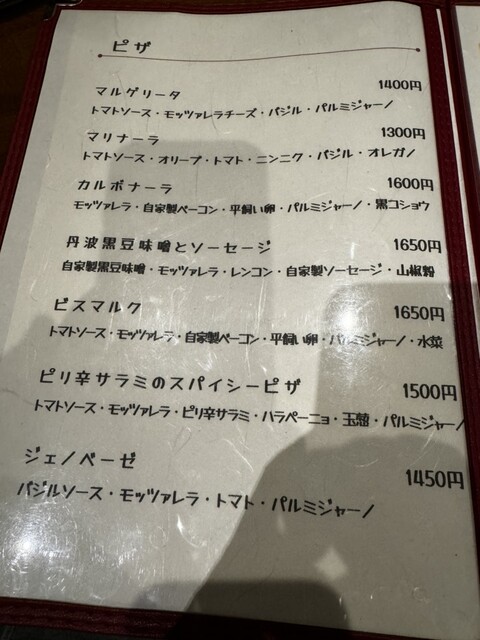 ピザ
マルゲリータ 1400円
トマトソース・モッツァレラチーズ・バジル・パルミジャーノ
マリナーラ 1300円
トマトソース・オリーブ・トマト・ニンニク・バジル・オレガノ
カルボナーラ 1600円
モッツァレラ・自家製ベーコン・平飼い卵・パルミジャーノ・黒コショウ
丹波黒豆味噌とソーセージ 1650円
自家製黒豆味噌・モッツァレラ・レンコン・自家製ソーセージ・山椒粉
ビスマルク 1650円
トマトソース・モッツァレラ・自家製ベーコン・平飼い卵・パルミジャーノ・水菜
ピリ辛サラミのスパイシーピザ 1500円
トマトソース・モッツァレラ・ピリ辛サラミ・ハラペーニョ・玉葱・パルミジャーノ
ジェノベーゼ 1450円
バジルソース・モッツァレラ・トマト・パルミジャーノ